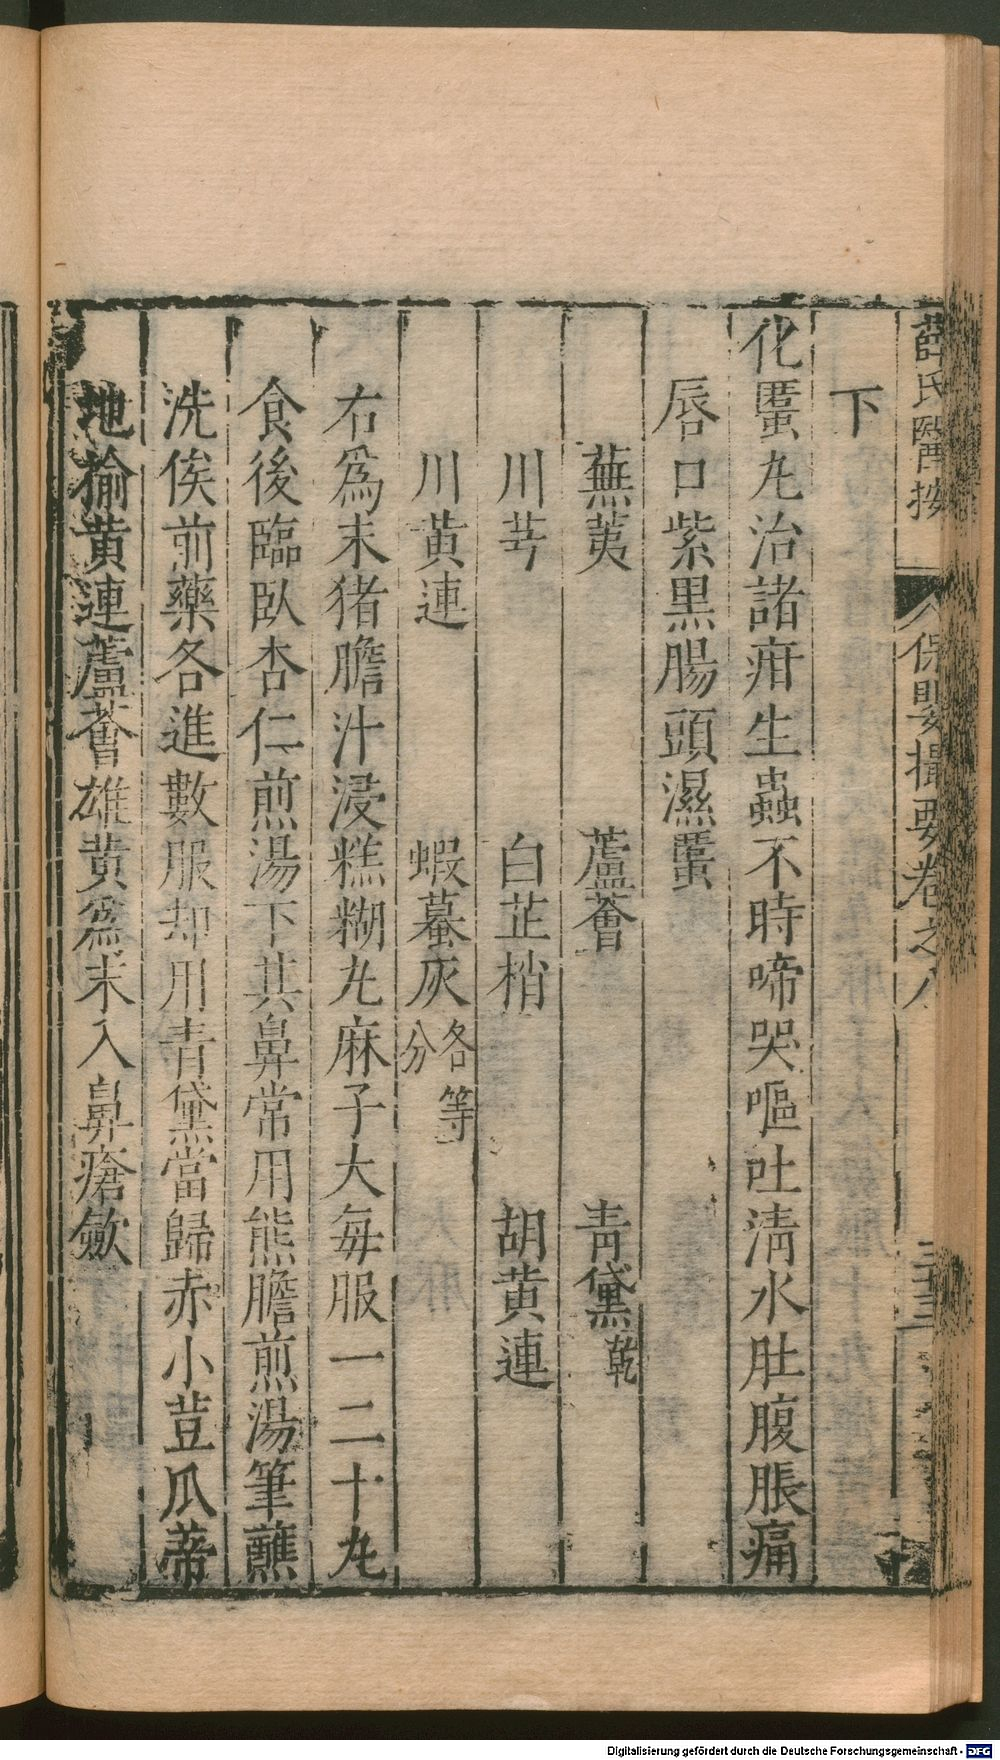 薛氏醫按 保嬰撮要卷之八 三十三
下
化䘌丸治諸疳生蟲不時啼哭嘔吐清水肚腹脹痛
唇口紫黑腸頭濕䘌
蕪荑 蘆薈 青黛乾
川芎 白芷梢 胡黃連
川黃連 蝦蟇灰各等分
右爲末猪膽汁浸糕糊丸麻子大每服一二十丸
食後臨臥杏仁煎湯下其鼻常用熊膽煎湯筆蘸
洗俟前藥各進數服却用青黛當歸赤小荳瓜蒂
地榆黃連蘆薈雄黃爲末入鼻瘡歛
Digitalisierung gefördert durch die Deutsche Forschungsgemeinschaft - DFG